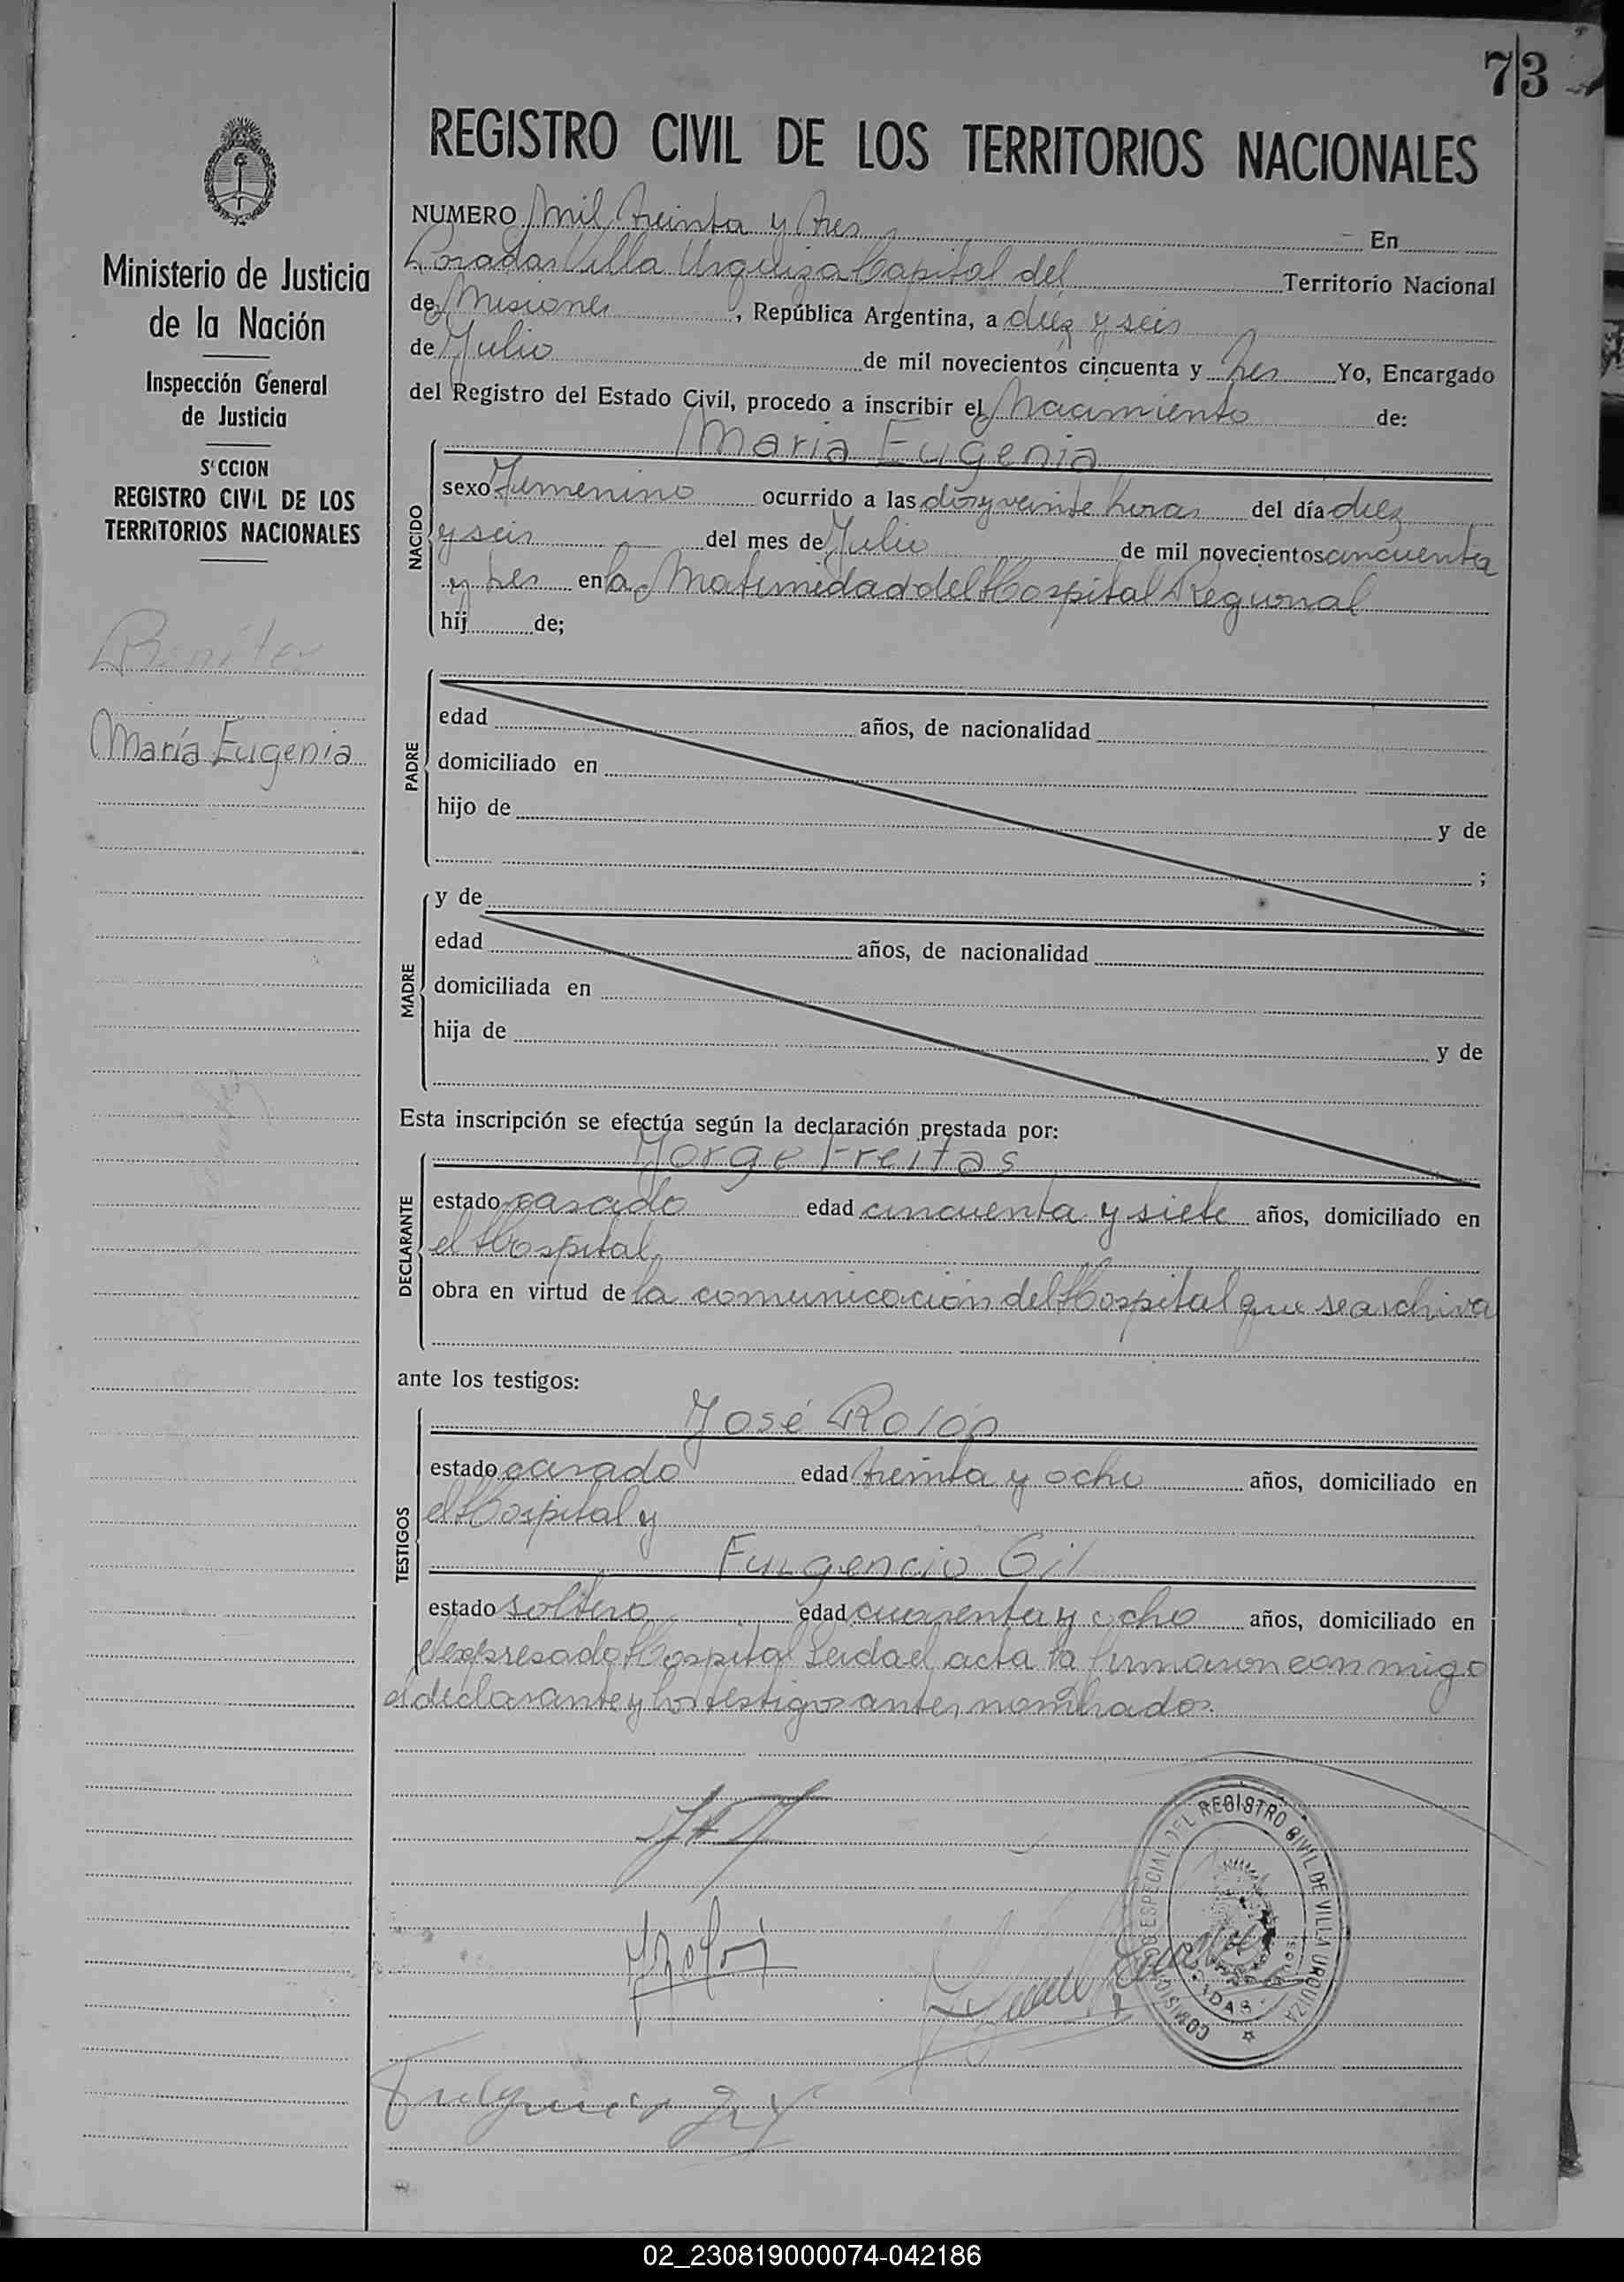 73
REGISTRO CIVIL DE LOS TERRITORIOS NACIONALES
Ministerio de Justicia
de la Nación
Inspección General
de Justicia
S CCION
REGISTRO CIVIL DE LOS
TERRITORIOS NACIONALES
Benitez
María Eugenia
NUMERO Mil treinta y tres En
Posadas Villa Urquiza Capital del Territorio Nacional
de Misiones, República Argentina, a diez y seis
de Julio de mil novecientos cincuenta y tres Yo, Encargado
del Registro del Estado Civil, procedo a inscribir el Nacimiento de:
María Eugenia
NACIDO
sexo Femenino ocurrido a las dos y veinte horas del día diez
y seis del mes de Julio de mil novecientos cincuenta
y tres en la Maternidad del Hospital Regional
hij de;
PADRE
edad años, de nacionalidad
domiciliado en
hijo de y de
;
MADRE
y de
edad años, de nacionalidad
domiciliada en
hija de y de
Esta inscripción se efectúa según la declaración prestada por:
DECLARANTE
Jorge Freitas
estado casado edad cincuenta y siete años, domiciliado en
el Hospital
obra en virtud de la comunicación del Hospital que se archiva
ante los testigos:
TESTIGOS
José Rolón
estado casado edad treinta y ocho años, domiciliado en
el Hospital y
Fulgencio Gil
estado soltero edad cuarenta y ocho años, domiciliado en
el expresado Hospital Leida el acta la firmaron conmigo
el declarante y los testigos antes nombrados.
COMISION ESPECIAL DEL REGISTRO CIVIL DE VILLA URQUIZA
JRolón
Fulgencio Gil
02_230819000074-042186